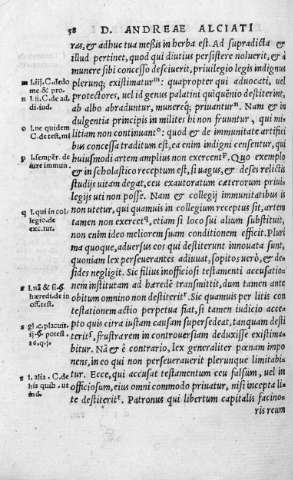 58 D. ANDREAE ALCIATI
ras, & adhuc tua meßis in herba est. Ad supradicta &
illud pertinet, quod qui diutius persistere noluerit, & à
munere sibi concesso desciuerit, priuilegio legis indignus
plerunq; existimatur m quapropter qui aduocati, uel
protectores, uel id genus palatini quiquẽnio destiterint,
ab albo abraduntur, munereq; priuantur n. Nam & in
dulgentia principis in milites bi non fruuntur, qui mi,
litiam non continuant o: quod & de immunitate artifici
bus concessa traditum est, ea enim indigni censentur, qui
huiusmodi artem amplius non exercent p. Quo exemplo
& in scholastico receptum est, si uagus, & deses relictis
studijs uitam degat, ceu exautoratum cæterorum priui,
legijs uti non posse. Nam & collegij immunitatibus is
non utetur, qui quamuis in collegium receptus sit, artem
tamen non exercet q, etiam si loco sui alium substituit,
non enim ideo meliorem suam conditionem efficit. Pluri
ma quoque, aduersus eos qui destiterunt innouata sunt,
quoniam lex perseuerantes adiuuat, sopitos uerò, & de,
sides negligit. Sic filius inofficiosi testamenti accusatio,
nem institutam ad hæredẽ transmittit, dum tamen ante
obitum omnino non destiterit r. Sic quamuis per litis con
testationem actio perpetua fiat, si tamen iudicio accep
pto quis citra iustam causam supersedeat, tanquam desti
terit s, frustrarem in controuersiam deduxisse existima
bitur. Nã & è contrario, lex generaliter pœnam impo
nens, in eo qui non perseuerauerit plerunque limitabi,
tur. Ecce, qui accusat testamentum ceu falsum, uel in
officiosum, eius omni commodo priuatur, nisi incepta li
te destiterit t. Patronus qui libertum capitalis facino,
ris reum
m l.iij. C. de do
me & pro.
n l.ij. C. de ad.
diuind.
o l.ne quidem
C. de test. mi
p l.semper. de
iure immun.
q l. qui in col
legio. de
excu. tut.